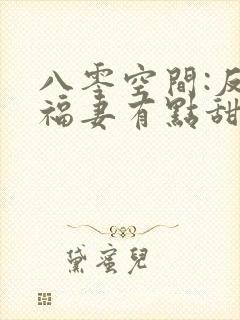 八零空間:反
福妻有點甜
黛蜜兒